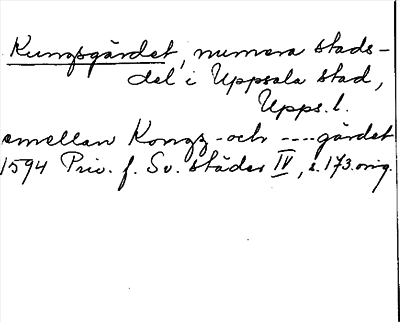 Kungsgärdet, numera stads-
del i Uppsala stad,
Upps. l.
emellan Kongz- och ----gärdet
1594 Priv. f. Sv. städer IV, s. 173. orig.